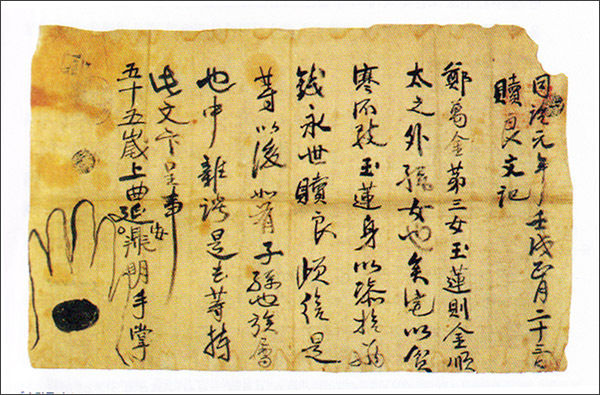 同治元年壬戌正月二十三日
贖良文記
鄭萬金第三女玉蓮則金順
太之外孫女也矣宅以貧
寒所致玉蓮身以拾
錢永世贖良是
等以後如有子孫也族屬
也中雜談是去等持
此文卞呈事
五十五歲上典明手掌